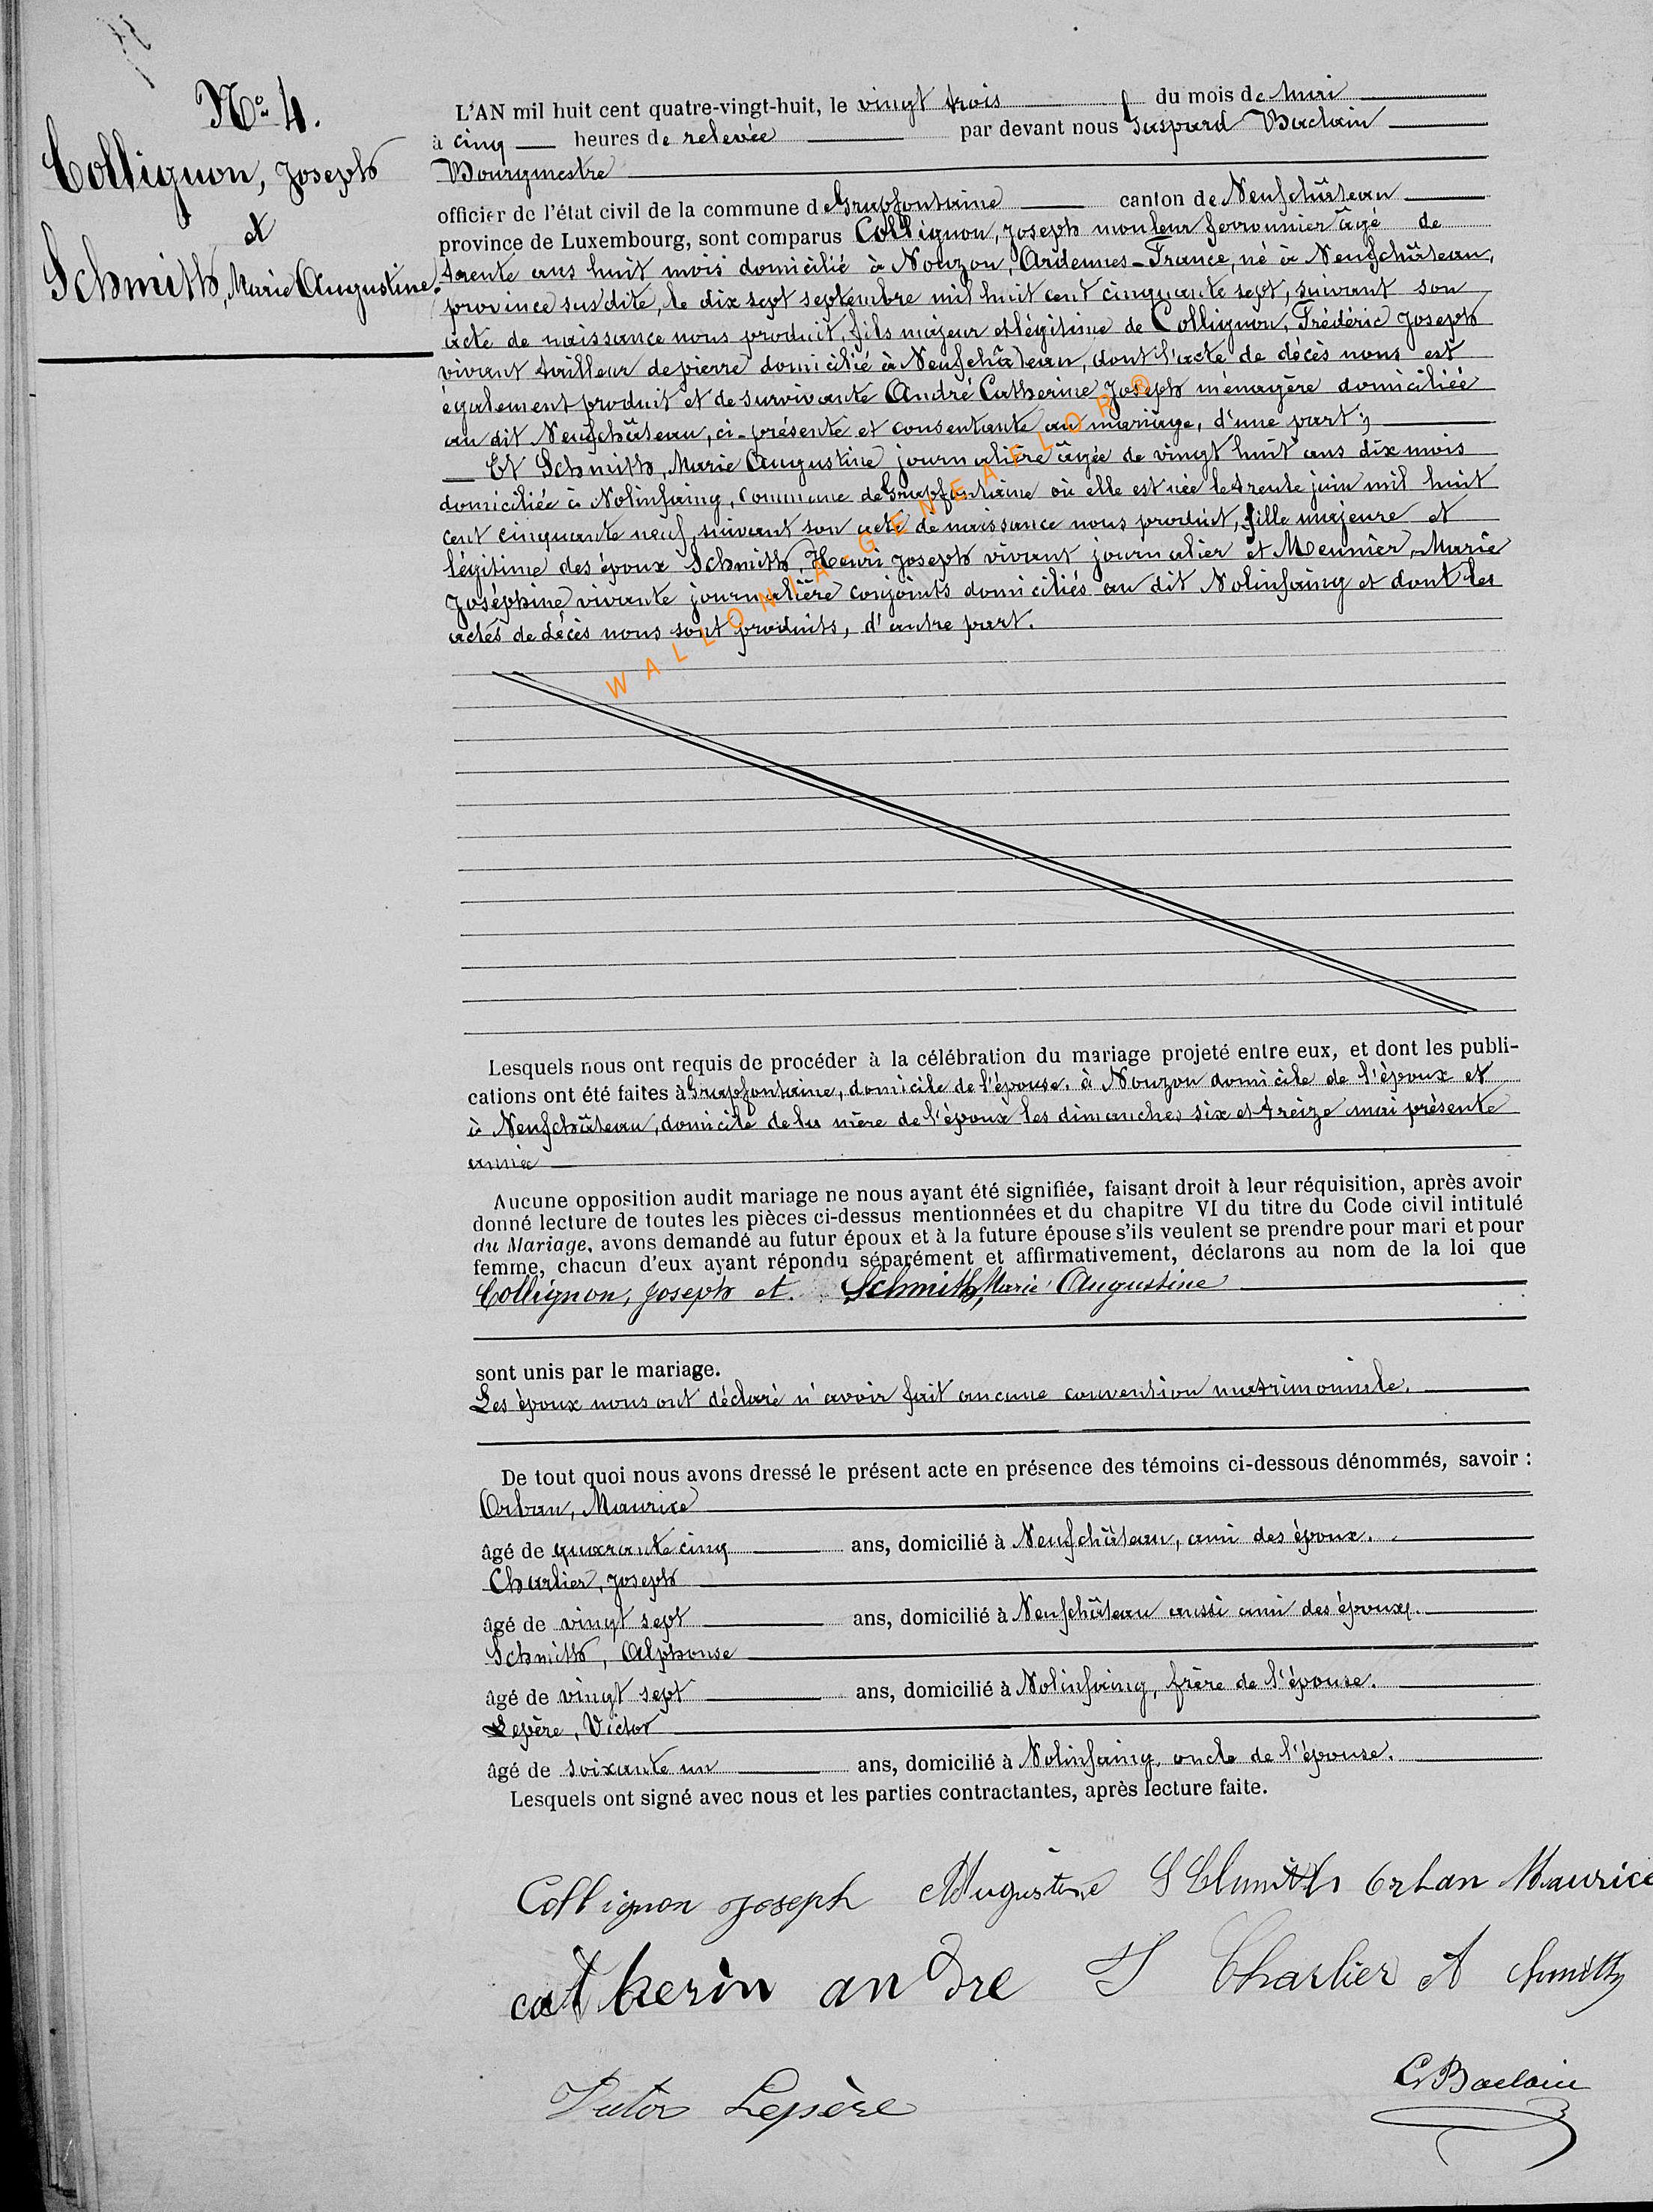 Nº 4.
Collignon, Joseph
et
Schmith, Marie Augustine.
L'AN mil huit cent quatre-vingt-huit, le vingt trois du mois de Mai
à cinq heures de relevée par devant nous Gaspard Baclain
Bourgmestre
officier de l'état civil de la commune de Grapfontaine canton de Neufchâteau
province de Luxembourg, sont comparus Collignon, Joseph mouleur ferronnier âgé de
trente ans huit mois domicilié à Nouzon, Ardennes-France, né à Neufchâteau,
province susdite, le dix sept septembre mil huit cent cinquante sept, suivant son
acte de naissance nous produit, fils majeur et légitime de Collignon, Frédéric Joseph
vivant tailleur de pierre domicilié à Neufchâteau, dont l'acte de décès nous est
également produit et de survivante André Catherine Joseph ménagère domiciliée
au dit Neufchâteau, ci-présente et consentante au mariage, d'une part;
Et Schmith, Marie Augustine journalière âgée de vingt huit ans dix mois
domiciliée à Nolinfaing, commune de Grapfontaine où elle est née le trente juin mil huit
cent cinquante neuf, suivant son acte de naissance nous produit, fille majeure et
légitime des époux Schmith, Henri Joseph vivant journalier et Meunier, Marie
Joséphine vivante journalière conjoints domiciliés au dit Nolinfaing et dont les
actes de décès nous sont produits, d'autre part.
WALLONIA-GENEAFLOR®
Lesquels nous ont requis de procéder à la célébration du mariage projeté entre eux, et dont les publi-
cations ont été faites à Grapfontaine, domicile de l'épouse. à Nouzon domicile de l'époux et
à Neufchâteau, domicile de la mère de l'époux les dimanches six et treize mai présente
année
Aucune opposition audit mariage ne nous ayant été signifiée, faisant droit à leur réquisition, après avoir
donné lecture de toutes les pièces ci-dessus mentionnées et du chapitre VI du titre du Code civil intitulé
du Mariage, avons demandé au futur époux et à la future épouse s'ils veulent se prendre pour mari et pour
femme, chacun d'eux ayant répondu séparément et affirmativement, déclarons au nom de la loi que
Collignon, Joseph et Schmith, Marie Augustine
sont unis par le mariage.
Les époux nous ont déclaré n'avoir fait aucune convention matrimoniale.
De tout quoi nous avons dressé le présent acte en présence des témoins ci-dessous dénommés, savoir :
Orban, Maurice
âgé de quarante cinq ans, domicilié à Neufchâteau, ami des époux.
Charlier, Joseph
âgé de vingt sept ans, domicilié à Neufchâteau aussi ami des époux.
Schmith, Alphonse
âgé de vingt sept ans, domicilié à Nolinfaing, frère de l'épouse.
Lepère, Victor
âgé de soixante un ans, domicilié à Nolinfaing, oncle de l'épouse.
Lesquels ont signé avec nous et les parties contractantes, après lecture faite.
Collignon Joseph Augustine Schmith Orban Maurice
catherin andre J Charlier A Schmith
Victor Lepère
G Baclain